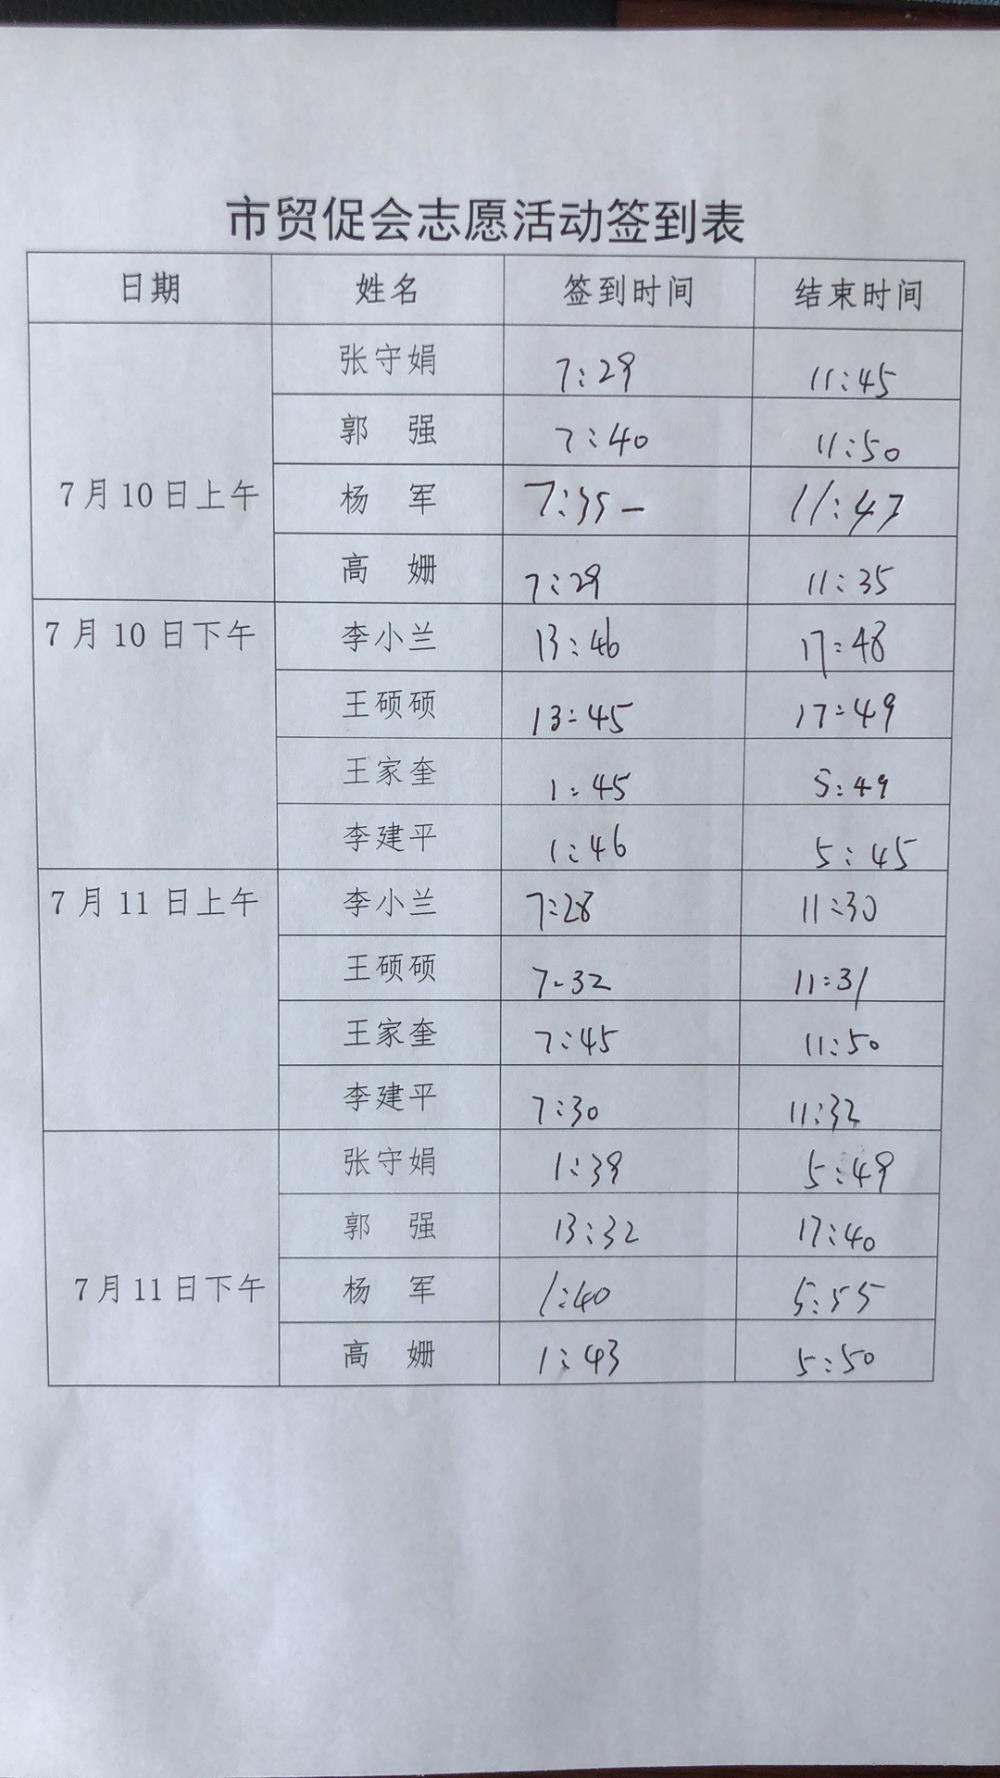 市贸促会志愿活动签到表
日期 姓名 签到时间 结束时间
7月10日上午 张守娟 7:29 11:45
郭 强 7:40 11:50
杨 军 7:35 11:47
高 姗 7:29 11:35
7月10日下午 李小兰 13:46 17:48
王硕硕 13:45 17:49
王家奎 1:45 5:49
李建平 1:46 5:45
7月11日上午 李小兰 7:28 11:30
王硕硕 7-32 11:31
王家奎 7:45 11:50
李建平 7:30 11:32
7月11日下午 张守娟 1:39 5:49
郭 强 13:32 17:40
杨 军 1:40 5:55
高 姗 1:43 5:50